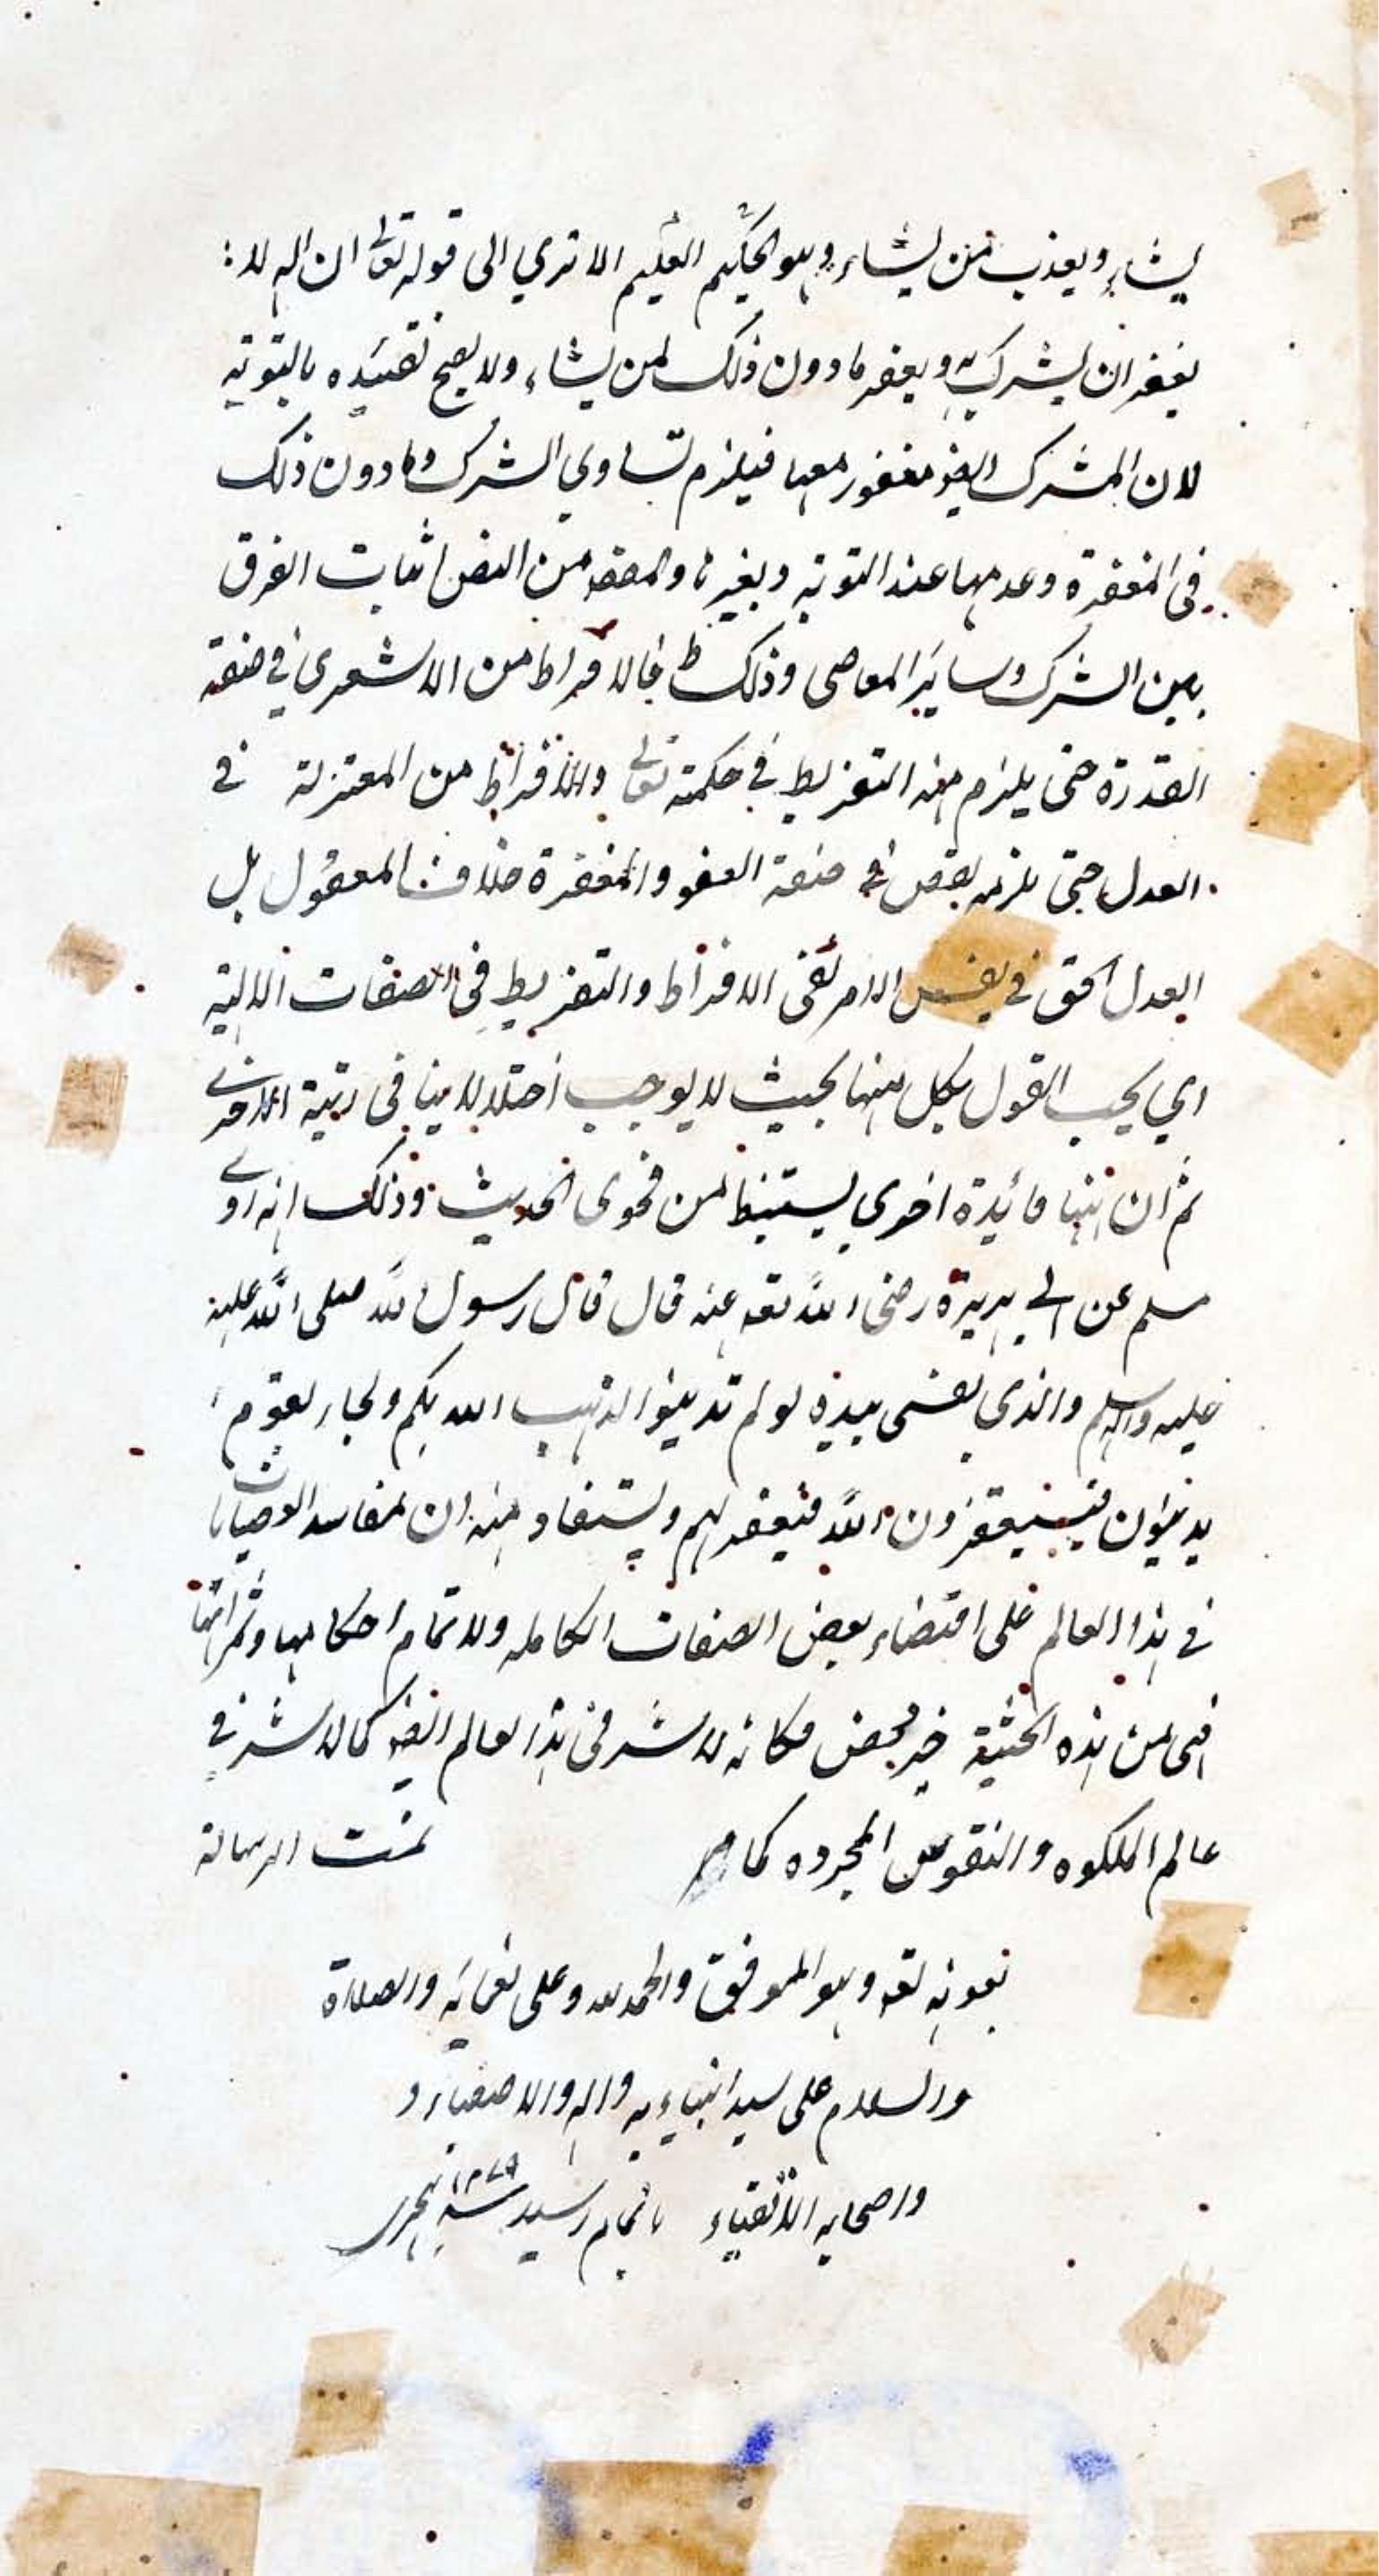 يشاء ويعذب من يشاء وهو الحكيم العليم الا تري الى قوله تعالى ان اله لا
يغفر ان يشرك به ويغفر ما دون ذلك لمن يشاء ولا يصح تقييده بالتوبة
لان المشرك ايضو مغفور معها فيلزم تساوي الشرك وما دون ذلك
فى المغفرة وعدمها عند التوبة وبغيرها والمقصد من النص اثبات الفرق
بين الشرك وساير المعاصى وذلك ظ فالافراط من الاشعرى في صفة
القدرة حتى يلزم منه التفريط في حكمته تعالى والافراط من المعتزلة في
العدل حتى يلزمه نقص في صفة العفو والمغفرة خلاف المعقول بل
العدل الحق في نفس الامر نفى الافراط والتفريط فى الصفات الالهية
اي يجب القول بكل منها بحيث لا يوجب اختلالا ينا فى رتبة الاخرى
ثم ان هنا فائدة اخرى يستنبط من فحوى الحديث وذلك انه روى
مسلم عن ابى هريرة رضى الله تعه عنه قال قال رسول الله صلى الله عليه
عليه واله وسلم والذى نفسى بيده لو لم تذنبوا لذهب الله بكم ولجاء بقوم
يذنبون فيستغفرون الله فيغفر لهم ويستفاد منه ان لمفاسد العصيانات
في هذا العالم على اقتضاء بعض الصفات الكامله ولا تمام احكامها وثمراتها
فهى من هذه الحيثية خير محض فكانه لا شر فى هذا العالم ايضو كما لا شر في
عالم الملكوه والنفوس المجرده كما مر تمت الرسالة
بعونه تعه وهو الموفق والحمد لله وعلى نعمائه والصلاة
والسلام على سيد انبياءيه واله والاصفياء و
واصحابه الاتقياء باتمام رسيد سنه هجرى